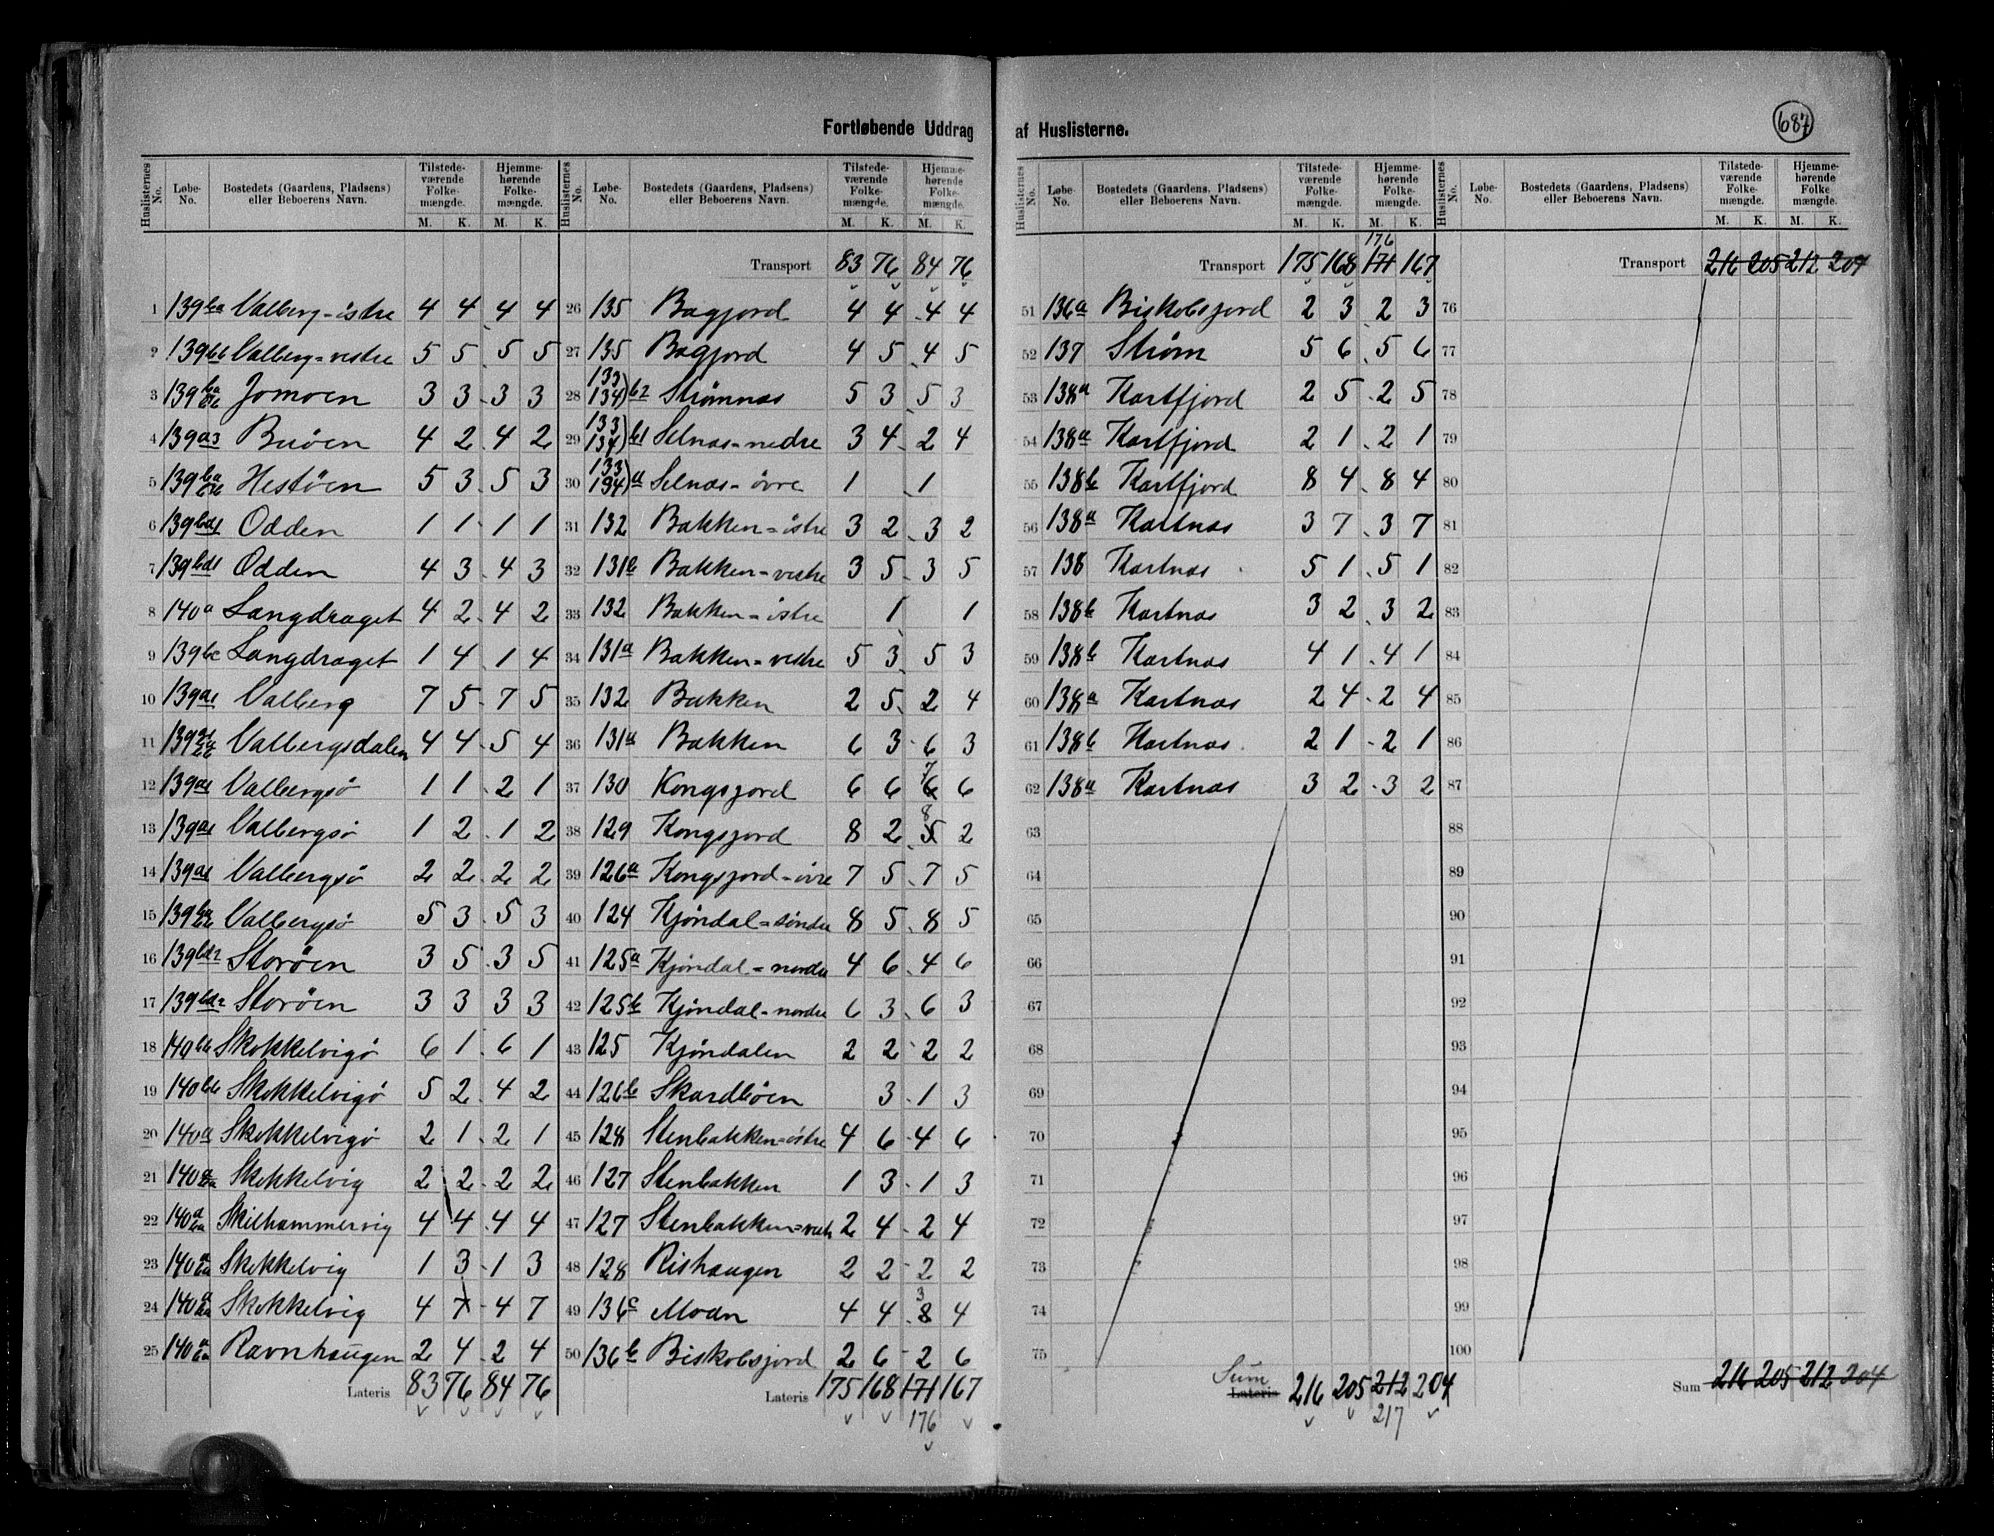 Fortløbende Uddrag af Huslisterne.
687
Huslisternes No. Løbe-No. Bostedets (Gaardens, Pladsens) eller Beboerens Navn. Tilstedeværende Folkemængde. M. K. Hjemmehørende Folkemængde. M. K.
1 139 Valberg-östre 4 4 4 4
2 139 Valberg-vestre 5 5 5 5
3 139 Jomoen 3 3 3 3
4 139a3 Buöen 4 2 4 2
5 139 Hestöen 5 3 5 3
6 139bd1 Odden 1 1 1 1
7 139bd1 Odden 4 3 4 3
8 140a Langdraget 4 2 4 2
9 139bc Langdraget 1 4 1 4
10 139a1 Valberg 7 5 7 5
11 139 Valbergsdalen 4 4 5 4
12 139a1 Valbergsö 1 1 2 1
13 139a1 Valbergsö 1 2 1 2
14 139a1 Valbergsö 2 2 2 2
15 139 Valbergsö 5 3 5 3
16 139bd2 Storöen 3 5 3 5
17 139bd2 Storöen 3 3 3 3
18 140bb Skokkelvigö 6 1 6 1
19 140bb Skokkelvigö 5 2 4 2
20 140a Skokkelvigö 2 1 2 1
21 140 Skokkelvig 2 2 2 2
22 140 Skilhammervig 4 4 4 4
23 140 Skokkelvig 1 3 1 3
24 140 Skokkelvig 4 7 4 7
25 140 Ravnhaugen 2 4 2 4
Lateris 83 76 84 76
Huslisternes No. Løbe-No. Bostedets (Gaardens, Pladsens) eller Beboerens Navn. Tilstedeværende Folkemængde. M. K. Hjemmehørende Folkemængde. M. K.
Transport 83 76 84 76
26 135 Bagjord 4 4 4 4
27 135 Bagjord 4 5 4 5
28 133 134) b2 Strømnas 5 3 5 3
29 133 134) b1 Selnas-nedre 3 4 2 4
30 133 134) a Selnas-övre 1 1
31 132 Bakken-östre 3 2 3 2
32 131b Bakken-vestre 3 5 3 5
33 132 Bakken-östre 1 1
34 131a Bakken-vestre 5 3 5 3
35 132 Bakken 2 5 2 4
36 131a Bakken 6 3 6 3
37 130 Kongsjord 6 6 6 7 6
38 129 Kongsjord 8 2 5 8 2
39 126a Kongsjord-övre 7 5 7 5
40 124 Kjöndal-söndre 8 5 8 5
41 125a Kjöndal-nordre 4 6 4 6
42 125b Kjöndal-nordre 6 3 6 3
43 125 Kjöndalen 2 2 2 2
44 126b Skardböen 3 1 3
45 128 Stenbakken-östre 4 6 4 6
46 127 Stenbakken 1 3 1 3
47 127 Stenbakken-vestr 2 4 2 4
48 128 Rishaugen 2 2 2 2
49 136c Moan 4 4 8 3 4
50 136b Biskobsjord 2 6 2 6
Lateris 175 168 171 167
176
Huslisternes No. Løbe-No. Bostedets (Gaardens, Pladsens) eller Beboerens Navn. Tilstedeværende Folkemængde. M. K. Hjemmehørende Folkemængde. M. K.
176
Transport 175 168 171 167
51 136a Biskobsjord 2 3 2 3
52 137 Strøm 5 6 5 6
53 138a Kartfjord 2 5 2 5
54 138a Kartfjord 2 1 2 1
55 138b Kartfjord 8 4 8 4
56 138a Kartnas 3 7 3 7
57 138 Kartnas 5 1 5 1
58 138b Kartnas 3 2 3 2
59 138b Kartnas 4 1 4 1
60 138a Kartnas 2 4 2 4
61 138b Kartnas 2 1 2 1
62 138a Kartnas 3 2 3 2
63
64
65
66
67
68
69
70
71
72
73
74
75
Sum
Lateris 216 205 212 204
217
Huslisternes No. Løbe-No. Bostedets (Gaardens, Pladsens) eller Beboerens Navn. Tilstedeværende Folkemængde. M. K. Hjemmehørende Folkemængde. M. K.
Transport 216 205 212 204
76
77
78
79
80
81
82
83
84
85
86
87
88
89
90
91
92
93
94
95
96
97
98
99
100
Sum 216 205 212 204